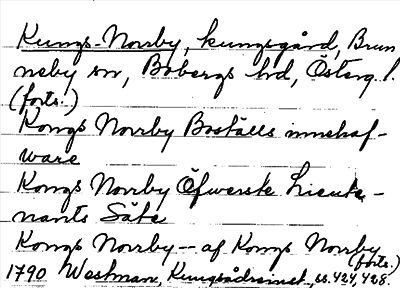 Kungs-Norrby, kungsgård, Brun
neby sn, Bobergs hd, Österg. l.
(forts.)
Kongs Norrby Boställs innehaf-
ware
Kongs Norrby Öfwerste Lieute-
nants Säte
Kongs Norrby -- af Kongs Norrby
(forts.)
1790 Westman, ss. 424, 428.